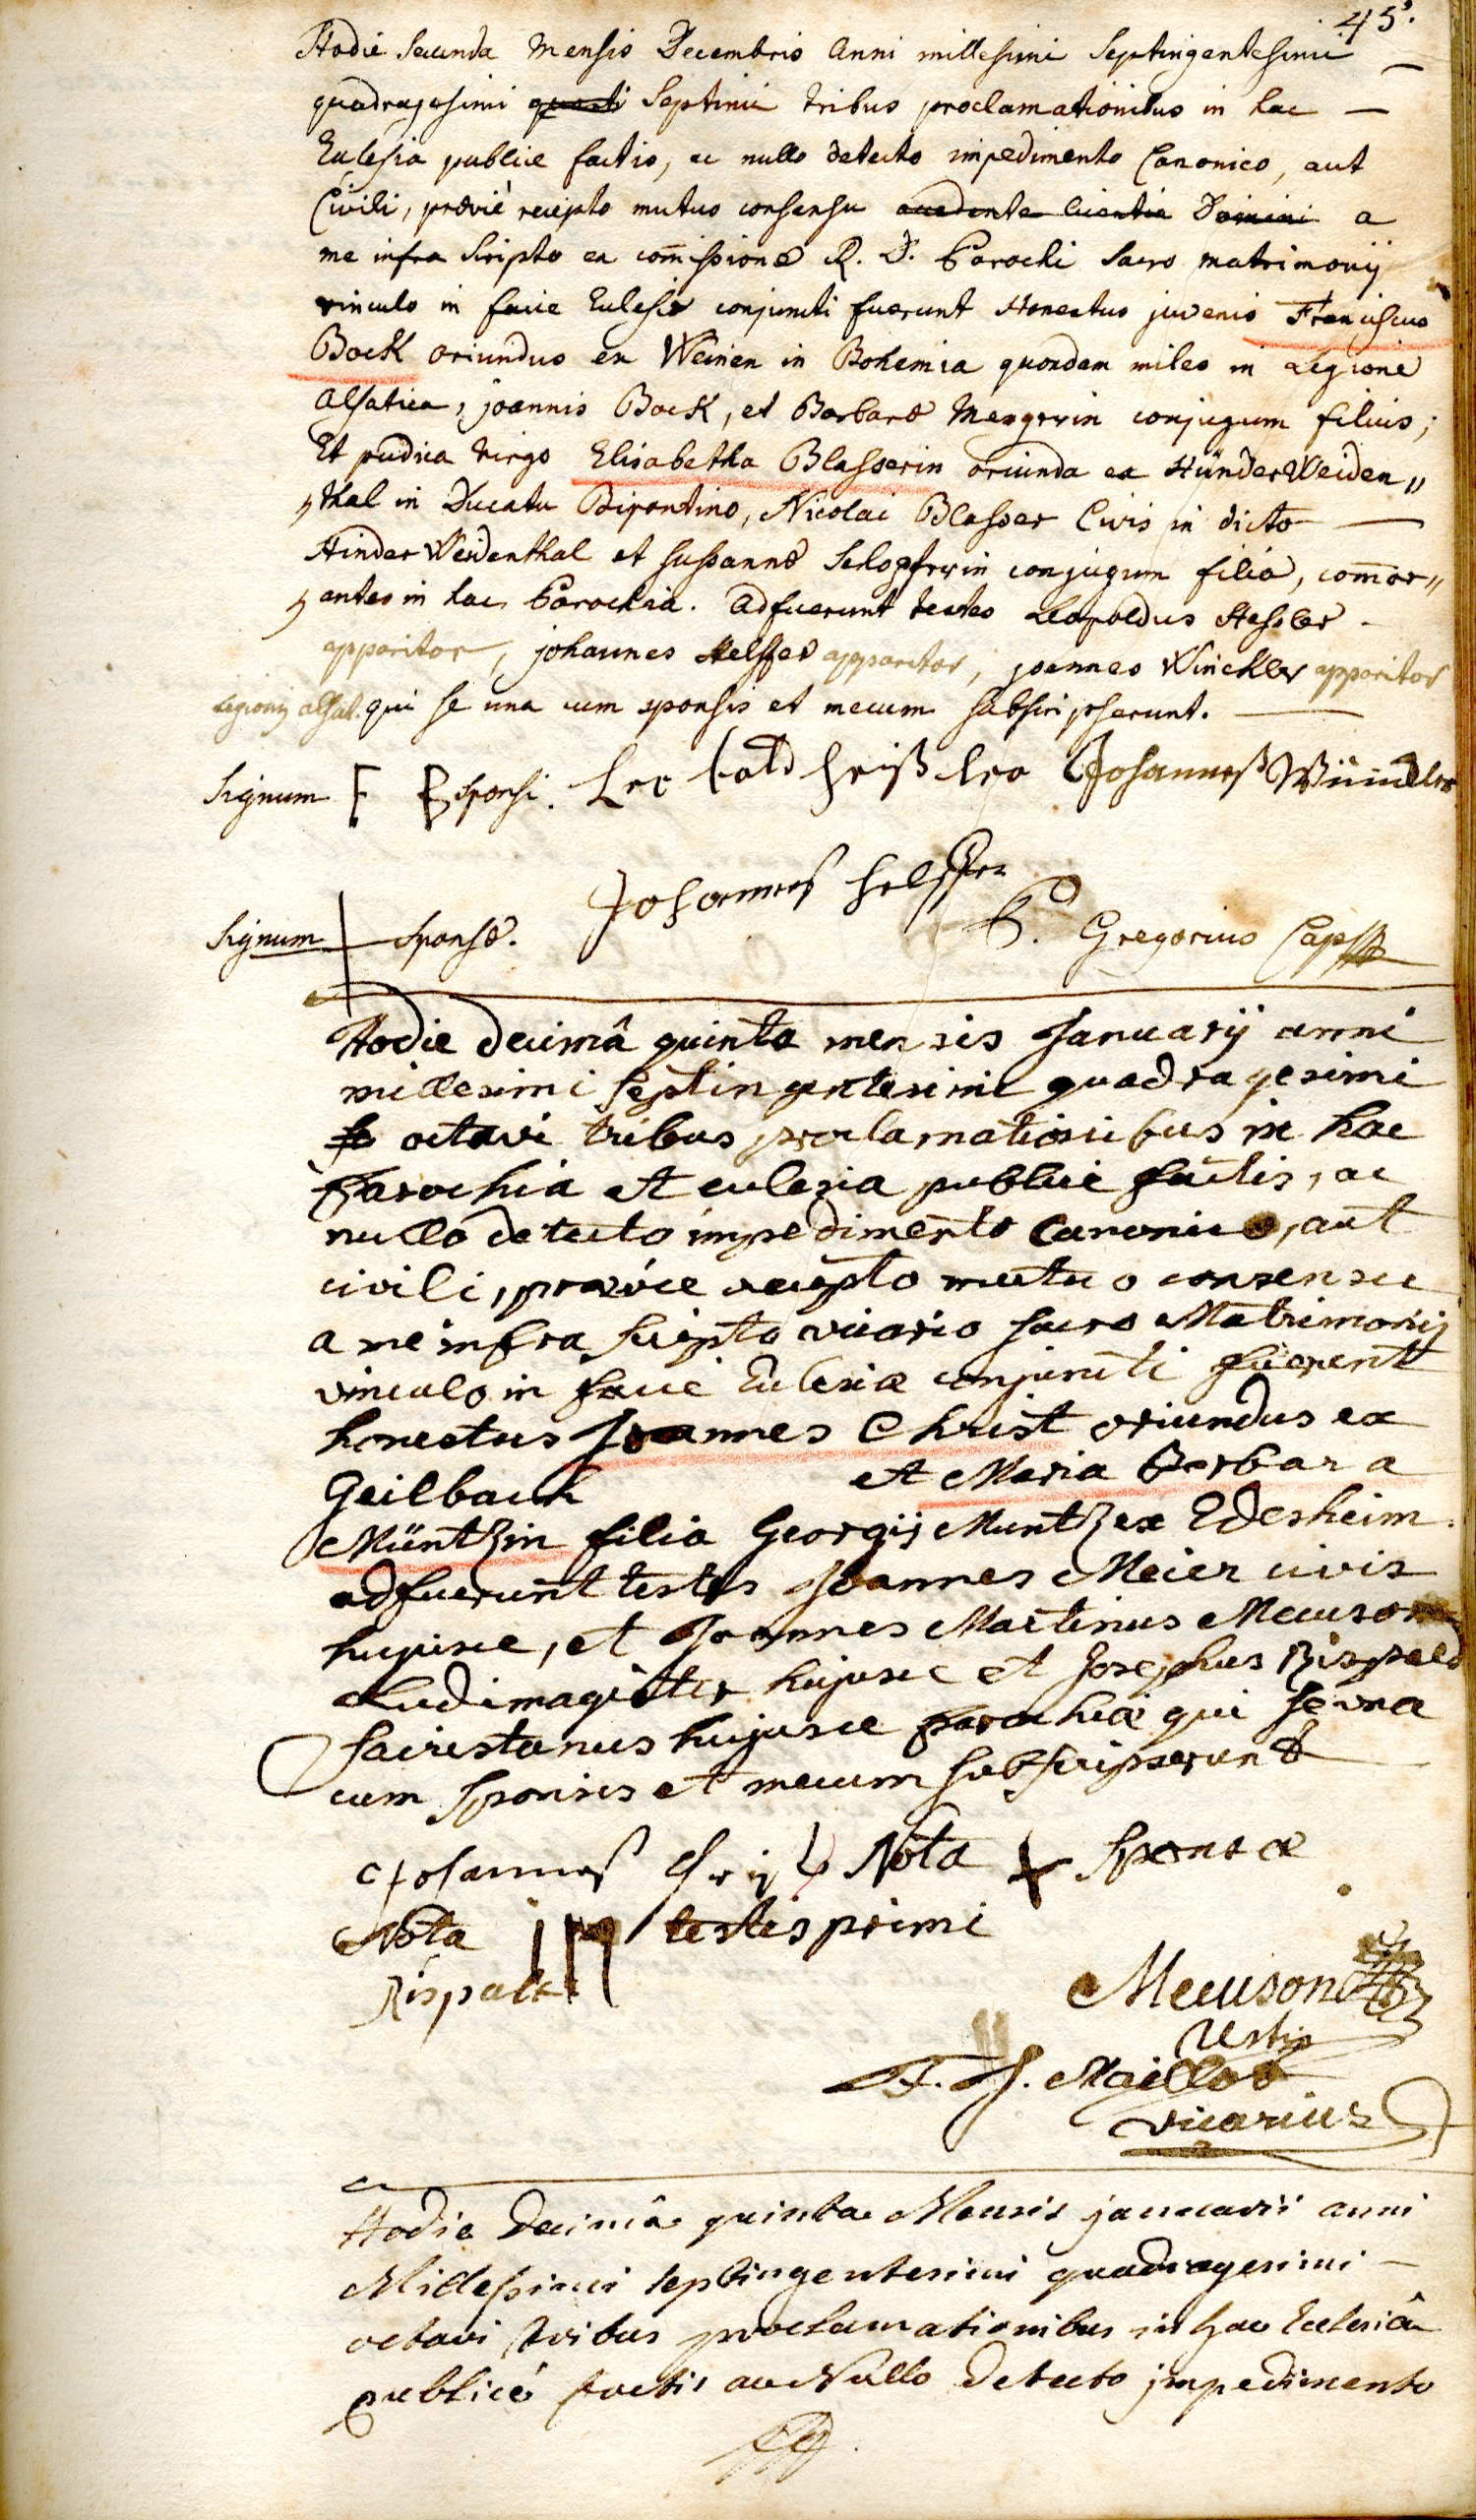 45.
Hodie Secunda Mensis Decembris Anni millesimi Septingentesimi
quadragesimi quarti Septimi tribus proclamationibus in hac
Ecclesia publice factis, ac nullo detecto impedimento Canonico, aut
Civili, prævie recepto mutuo consensu accedente licentia Domini a
me infra Scripto ex com̄issione R. D. Parochi Sacro matrimonij
vinculo in facie Ecclesiæ conjuncti fuerunt Honestus juvenis Franciscus
Bock oriundus ex Weinen in Bohemia quondam miles in Legione
Alsatica, joannis Bock, et Barbaræ Mengerin conjugum filius;
Et pudica virgo Elisabetha Blasserin oriunda ex HünderWeiden„
„thal in Ducatu Bipontino, Nicolai Blasser Civis in dicto
HinderWeidenthal et Sussannæ Schopferin conjugum filia, com̄or„
„antes in hac Parochia. Adfuerunt testes Leopoldus Hessler
apparitor, johannes Helffer apparitor, joannes Winckler apparitor
Legionis alsat. qui se una cum sponsis et mecum subscripserunt.
Signum Sponsi. Johannes Winckler
Johannes Helffer
Signum Sponsæ. P. Gregorius Cap
Hodie decimâ quinta mensis Januarij anni
millesimi septingentesimi quadragesimi
octavi tribus proclamationibus in hac
Parochia et ecclesia publice factis, ac
nullo detecto impedimento Canonico, aut
civili, prævie recepto mutuo consensu
a me infra scripto vicario sacro Matrimonij
vinculo in facie Ecclesiæ conjuncti fuerunt
honestus Joannes Christ oriundus ex
Geilbach et Maria Barbara
Müntzin filia Georgij Muntz ex Edesheim.
adfuerunt testes Joannes Meier civis
hujusce, et Joannes Martinus Mecuson
Ludimagister hujusce et Josephus Rispald
sacristanus hujusce parochiæ qui se una
cum sponsis et mecum subscripserunt
Johannes Crist Nota Sponsæ
Nota testis primi
Rispalt Mecuson
testis
F. J. Maillot
vicarius
Hodie decimâ quinta Mensis januarii anni
Millessimi septingentesimi quadragesimi
octavi tribus proclamationibus in hac Ecclesiâ
publicè factis ac Nullo detecto impedimento